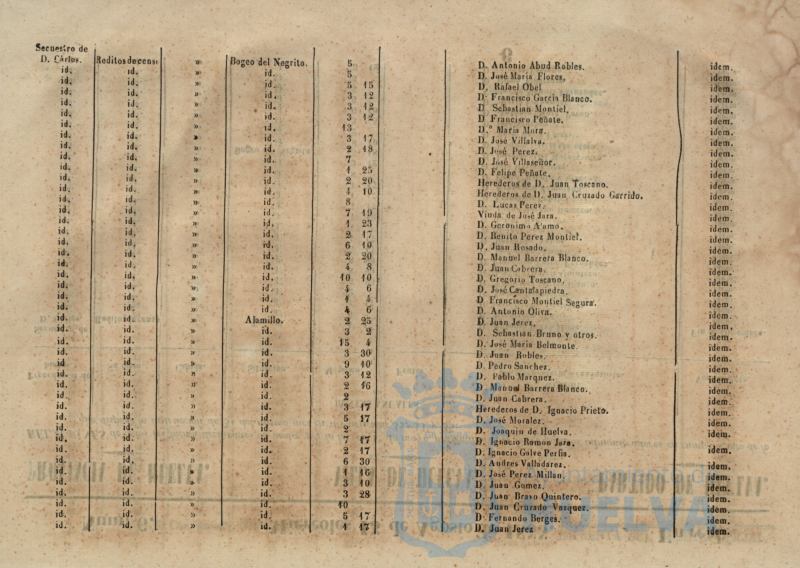 Secuestro de
D. Cárlos. Reditos de cens: » Bogeo del Negrito. 5 D. Antonio Abud Robles. idem.
id. id. » id. 5 D. José Maria Flores. idem.
id. id. » id. 5 15 D. Rafael Obel idem.
id. id. » id. 3 12 D. Francisco Garcia Blanco. idem.
id. id. » id. 3 12 D. Sebastian Montiel. idem.
id. id. » id. 3 12 D. Francisco Peñate. idem.
id. id. » id. 13 D.ª Maria Mora. idem.
id. id. » id. 3 17 D. José Villalva. idem.
id. id. » id. 2 18 D. José Perez. idem.
id. id. » id. 7 D. José Villaseñor. idem.
id. id. » id. 1 25 D. Felipe Peñate. idem.
id. id. » id. 2 20 Herederos de D. Juan Toscano. idem.
id. id. » id. 4 10 Herederos de D. Juan Cruzado Garrido. idem.
id. id. » id. 8 D. Lucas Perez. idem.
id. id. » id. 7 19 Viuda de José Jara. idem.
id. id. » id. 1 23 D. Geronimo Alamo. idem.
id. id. » id. 2 17 D. Benito Perez Montiel. idem.
id. id. » id. 6 10 D. Juan Rosado. idem.
id. id. » id. 2 20 D. Manuel Barrera Blanco. idem.
id. id. » id. 4 8 D. Juan Cabrera. idem.
id. id. » id. 10 10 D. Gregorio Toscano. idem.
id. id. » id. 4 6 D. José Cantalapiedra. idem.
id. id. » id. 4 4 D. Francisco Montiel Segura. idem.
id. id. » id. 4 6 D. Antonio Oliva. idem.
id. id. » Alamillo. 2 25 D. Juan Jerez. idem.
id. id. » id. 3 2 D. Sebastian Bruno y otros. idem.
id. id. » id. 15 4 D. José Maria Belmonte. idem.
id. id. » id. 3 30 D. Juan Robles. idem.
id. id. » id. 9 10 D. Pedro Sanchez. idem.
id. id. » id. 3 12 D. Pablo Marquez. idem.
id. id. » id. 2 16 D. Manuel Barrera Blanco. idem.
id. id. » id. 2 D. Juan Cabrera. idem.
id. id. » id. 3 17 Herederos de D. Ignacio Prieto. idem.
id. id. » id. 5 17 D. José Moralez. idem.
id. id. » id. 2 D. Joaquin de Huelva. idem.
id. id. » id. 7 17 D. Ignacio Ramon Jara. idem.
id. id. » id. 2 17 D. Ignacio Galve Perfia.
id. id. » id. 6 30 D. Andres Valladarez. idem.
id. id. » id. 1 16 D. José Perez Millan. idem.
id. id. » id. 3 10 D. Juan Gomez. idem.
id. id. » id. 3 28 D. Juan Bravo Quintero. idem.
id. id. » id. 10 D. Juan Cruzado Vazquez. idem.
id. id. » id. 5 17 D. Fernando Borges. idem.
id. id. » id. 1 17 D. Juan Jerez idem.
HUELVA